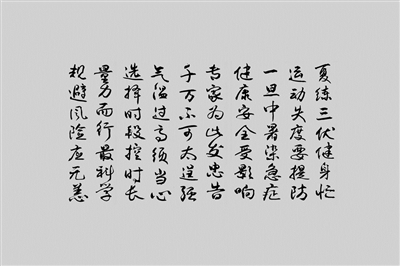 夏练三伏健身忙
运动失度要提防
一旦中暑染急症
健康安全受影响
专家为此发忠告
千万不可太逞强
气温过高须当心
选择时段控时长
量力而行最科学
规避风险应无恙